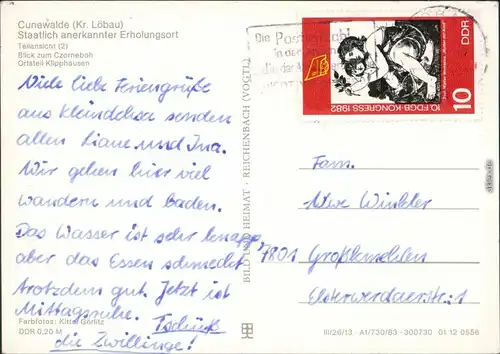 Cunewalde (Kr. Löbau)
Staatlich anerkannter Erholungsort
Teilansicht (2)
Blick zum Czorneboh
Ortsteil Klipphausen
Viele liebe Feriengrüße
aus Kleindehsa senden
allen Liane und Ina.
Wir gehen hier viel
wandern und baden.
Das Wasser ist sehr knapp,
aber das Essen schmeckt
trotzdem gut. Jetzt ist
Mittagsruhe. Tschüß
die Zwillinge!
Farbfotos: Kittel Görlitz
DDR 0,20 M
BILD UND HEIMAT · REICHENBACH (VOGTL)
Die Postleitzahl
in der
10. FDGB-KONGRESS 1982
DDR
10
Fam.
Uwe Winkler
7801 Großkmehlen
Elsterwerdaerstr. 1
III/26/13 · A1/730/83 · 300730 01 12 0556